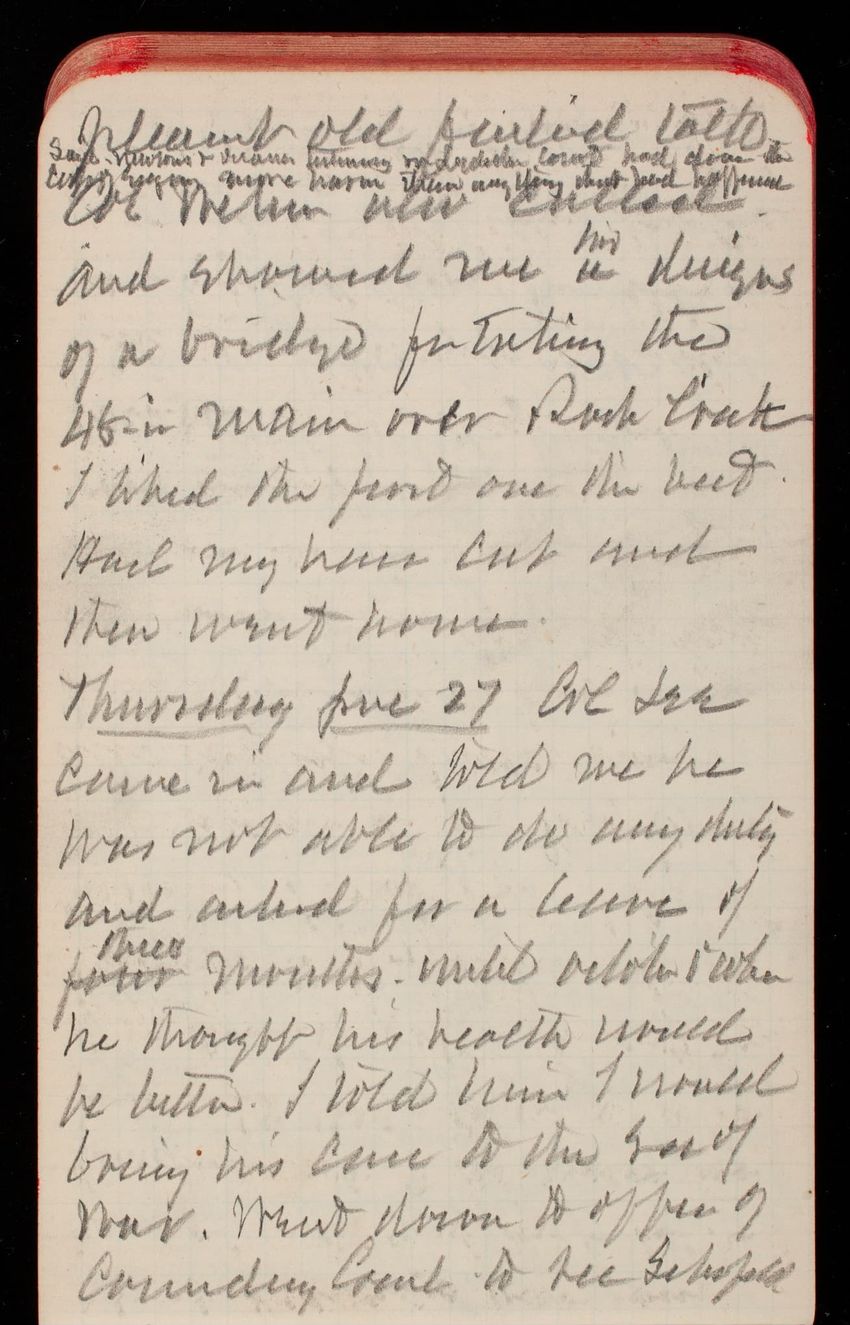 pleasant old talk
Says had done the
more harm than anything that had happened
Col
and showed me his designs
of a bridge for the
48 in main over Rock Creek
I liked the first one the best.
Had my hair cut and
then went home.
Thursday June 27 Col
came in and told me he
was not able to do any duty
and asked for a leave of
four three months. until october when
he thought his health would
be better. I told him I would
bring his case to the Sec of
War. Went down to office of
to see Schofield